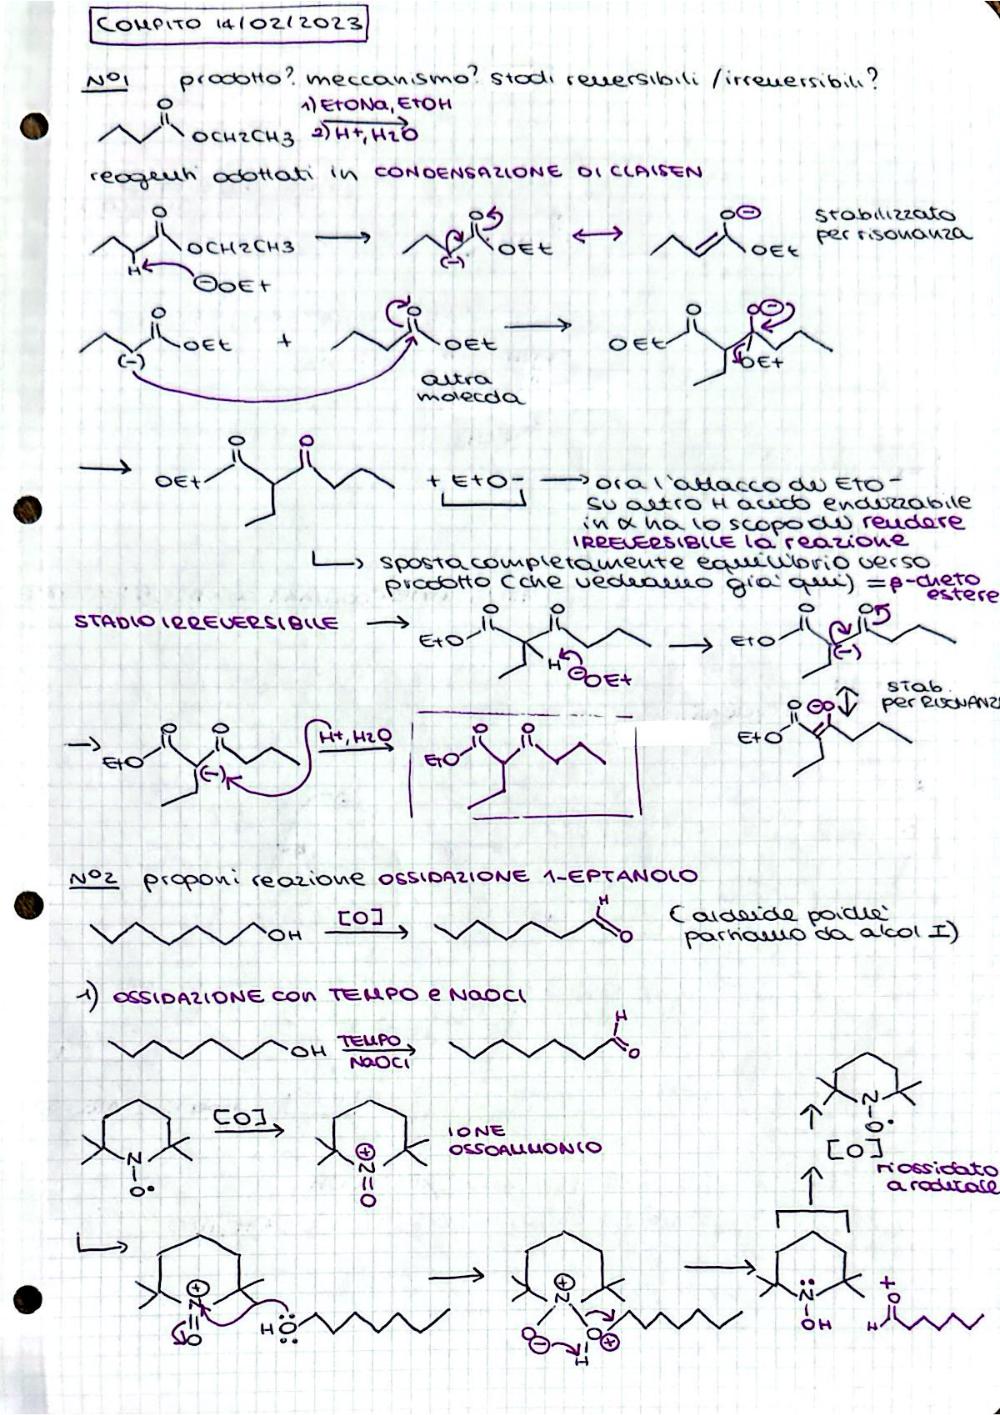 COMPITO 14/02/2023
N°1 prodotto? meccanismo? stadi reversibili / irreversibili?
O
1) EtONa, EtOH
OCH2CH3 2) H+, H2O
reagenti adottati in CONDENSAZIONE DI CLAISEN
O O O⊖ stabilizzato
OCH2CH3 OEt OEt per risonanza
H (-)
⊖OEt
O O O O⊖
OEt + OEt OEt OEt
(-)
altra
molecola
O O
OEt + EtO- → ora l'attacco di EtO-
su altro H acido enolizzabile
in α ha lo scopo di rendere
IRREVERSIBILE la reazione
sposta completamente equilibrio verso
prodotto (che vediamo già qui) = β-cheto
estere
STADIO IRREVERSIBILE
O O O O
EtO EtO
H (-)
⊖OEt
stab.
per RISONANZA
O ⊖O
EtO
O O H+, H2O O O
EtO EtO
(-)
N°2 proponi reazione OSSIDAZIONE 1-EPTANOLO
OH [O] H O (aldeide poiché
partiamo da alcol I)
1) OSSIDAZIONE con TEMPO e NaOCl
OH TEMPO H
NaOCl O
N [O] N⊕ IONE
O• O OSSOAMMONIO
N
O•
[O]
riossidato
a radicale
N⊕ N⊕ N +
O HO O⊖ O⊕ OH O
H H